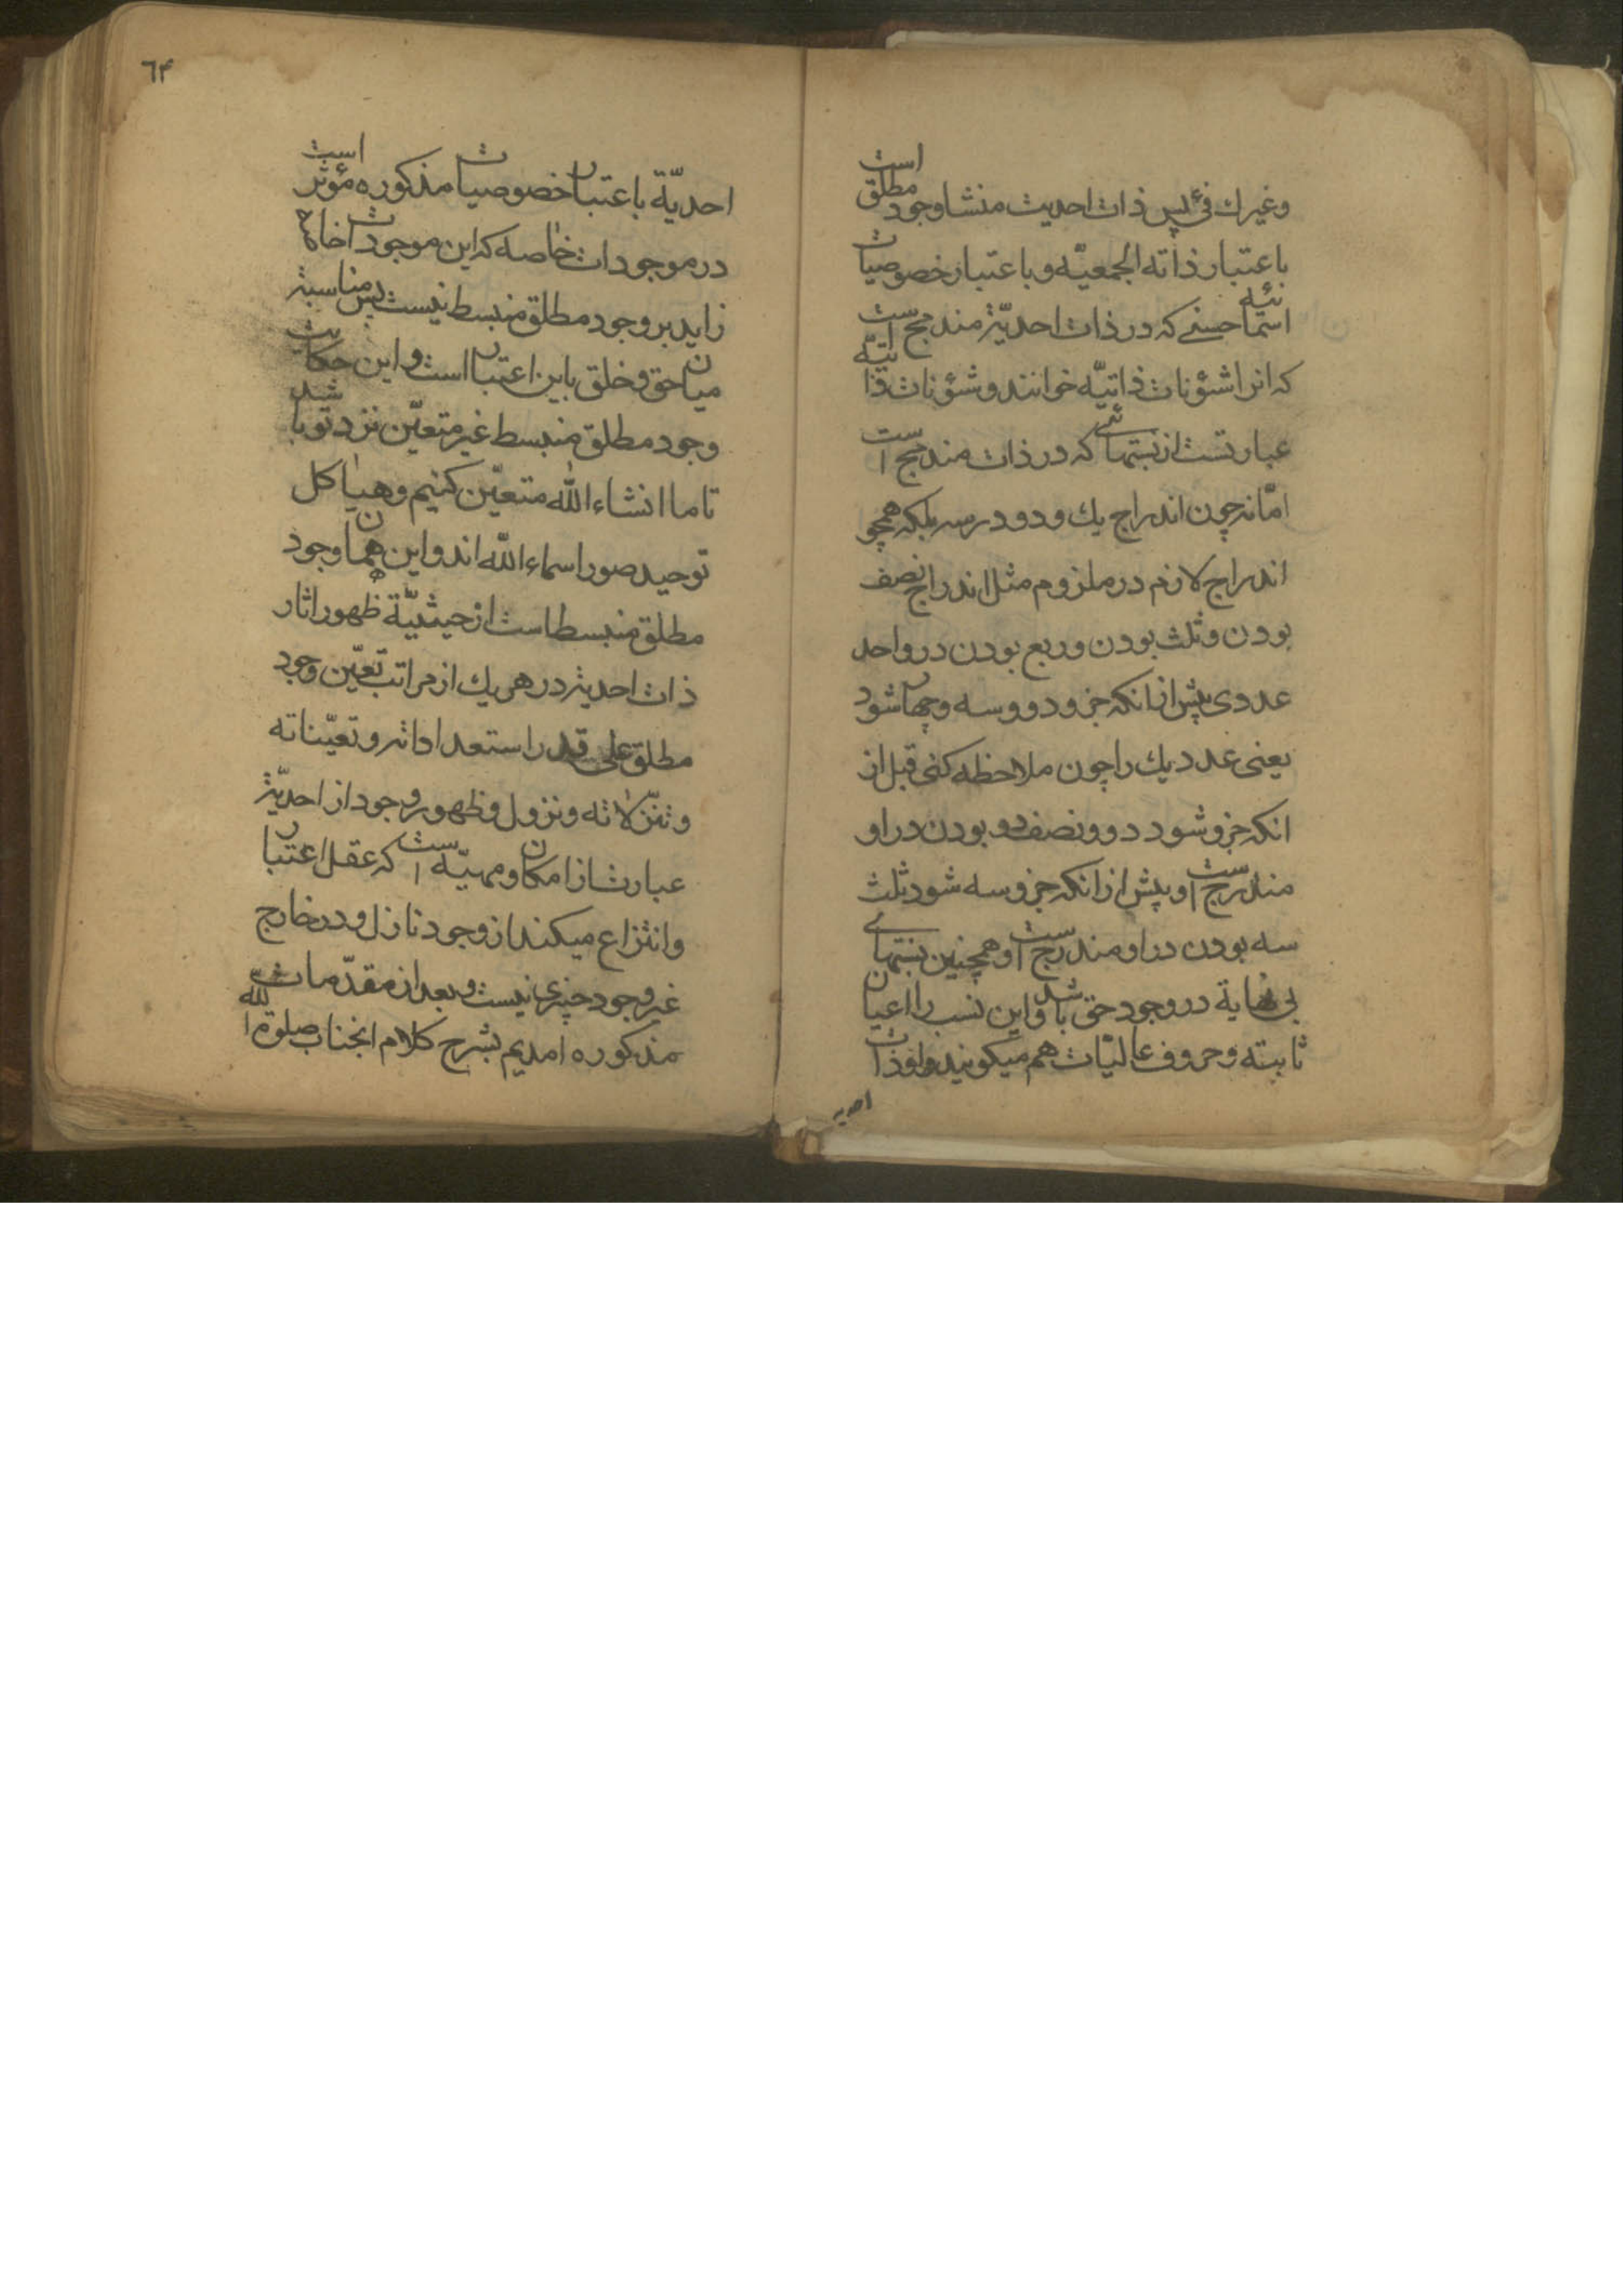 وغیرك فئ پس ذات احدیث منشا وجود مطلق است
باعتبار ذاته الجمعیّه و باعتبار خصوصیات
اسمائیه حسنے که در ذات احدیّة مندمج است
که انرا شئونات ذاتیّه خوانند و شئونات ذاتیّه
عبارتست از نسبتهائے که در ذات مندمج است
امّا نه چون اندراج یك و دو در سه بلکه همچو
اندراج لازم در ملزوم مثل اندراج نصف
بودن و ثلث بودن و ربع بودن در واحد
عددی پیش از انکه جزو دو و سه و چهار شود
یعنی عدد یك را چون ملاحظه کنی قبل از
انکه جزو شود دو و نصف دو بودن در او
مندرج است و پیش از انکه جزو سه شود ثلث
سه بودن در او مندرج است و همچنین نسبتهاے
بی نهایة در وجود حق باشد و این نسب را اعیان
ثابته و حروف عالیات هم میکویند و او ذات
احدیه
٦۴
احدیّة باعتبار خصوصیات مذکوره مؤثر است
در موجودات خاصه که این موجودات خاصه
زاید بر وجود مطلق منبسط نیست پس مناسبة
میان حق و خلق باین اعتبار است و این حکایت
وجود مطلق منبسط غیر متعیّن نزد تو باشد
تا ما انشاء الله متعیّن کنیم و هیاکل
توحید صور اسماء الله اند و این همان وجود
مطلق منبسط است از حیثیّة ظهور اثار
ذات احدیة در هر یك از مراتب تعیّن وجود
مطلق علی قدر استعداداته و تعیّناته
و تنزّلاته و نزول و ظهور وجود از احدیّة
عبارت از امکان و مهیّه است که عقل اعتبار
و انتزاع میکند از وجود نازل و در خارج
غیر وجود چیزی نیست و بعد از مقدّمات
مذکوره امدیم بشرح کلام انجناب صلوة الله